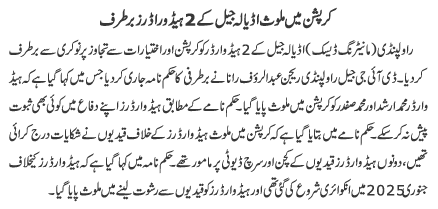 کرپشن میں ملوث اڈیالہ جیل کے 2 ہیڈ وارڈرز برطرف
راولپنڈی (مانیٹرنگ ڈیسک) اڈیالہ جیل کے 2 ہیڈ وارڈر کو کرپشن اور اختیارات سے تجاوز پر نوکری سے برطرف
کر دیا۔ ڈی آئی جی جیل راولپنڈی ریجن عبدالرؤف رانا نے برطرفی کا حکم نامہ جاری کر دیا جس میں کہا گیا ہے کہ ہیڈ
وارڈر محمد ارشد اور محمد صفدر کو کرپشن میں ملوث پایا گیا۔ حکم نامے کے مطابق ہیڈ وارڈرز اپنے دفاع میں کوئی بھی ثبوت
پیش نہ کر سکے۔ حکم نامے میں بتایا گیا ہے کہ کرپشن میں ملوث ہیڈ وارڈرز کے خلاف قیدیوں نے شکایات درج کرائی
تھیں، دونوں ہیڈ وارڈرز قیدیوں کے کچن اور سرچ ڈیوٹی پر مامور تھے۔ حکم نامہ میں کہا گیا ہے کہ ہیڈ وارڈرز کیخلاف
جنوری 2025 میں انکوائری شروع کی گئی تھی اور ہیڈ وارڈرز کو قیدیوں سے رشوت لینے میں ملوث پایا گیا۔